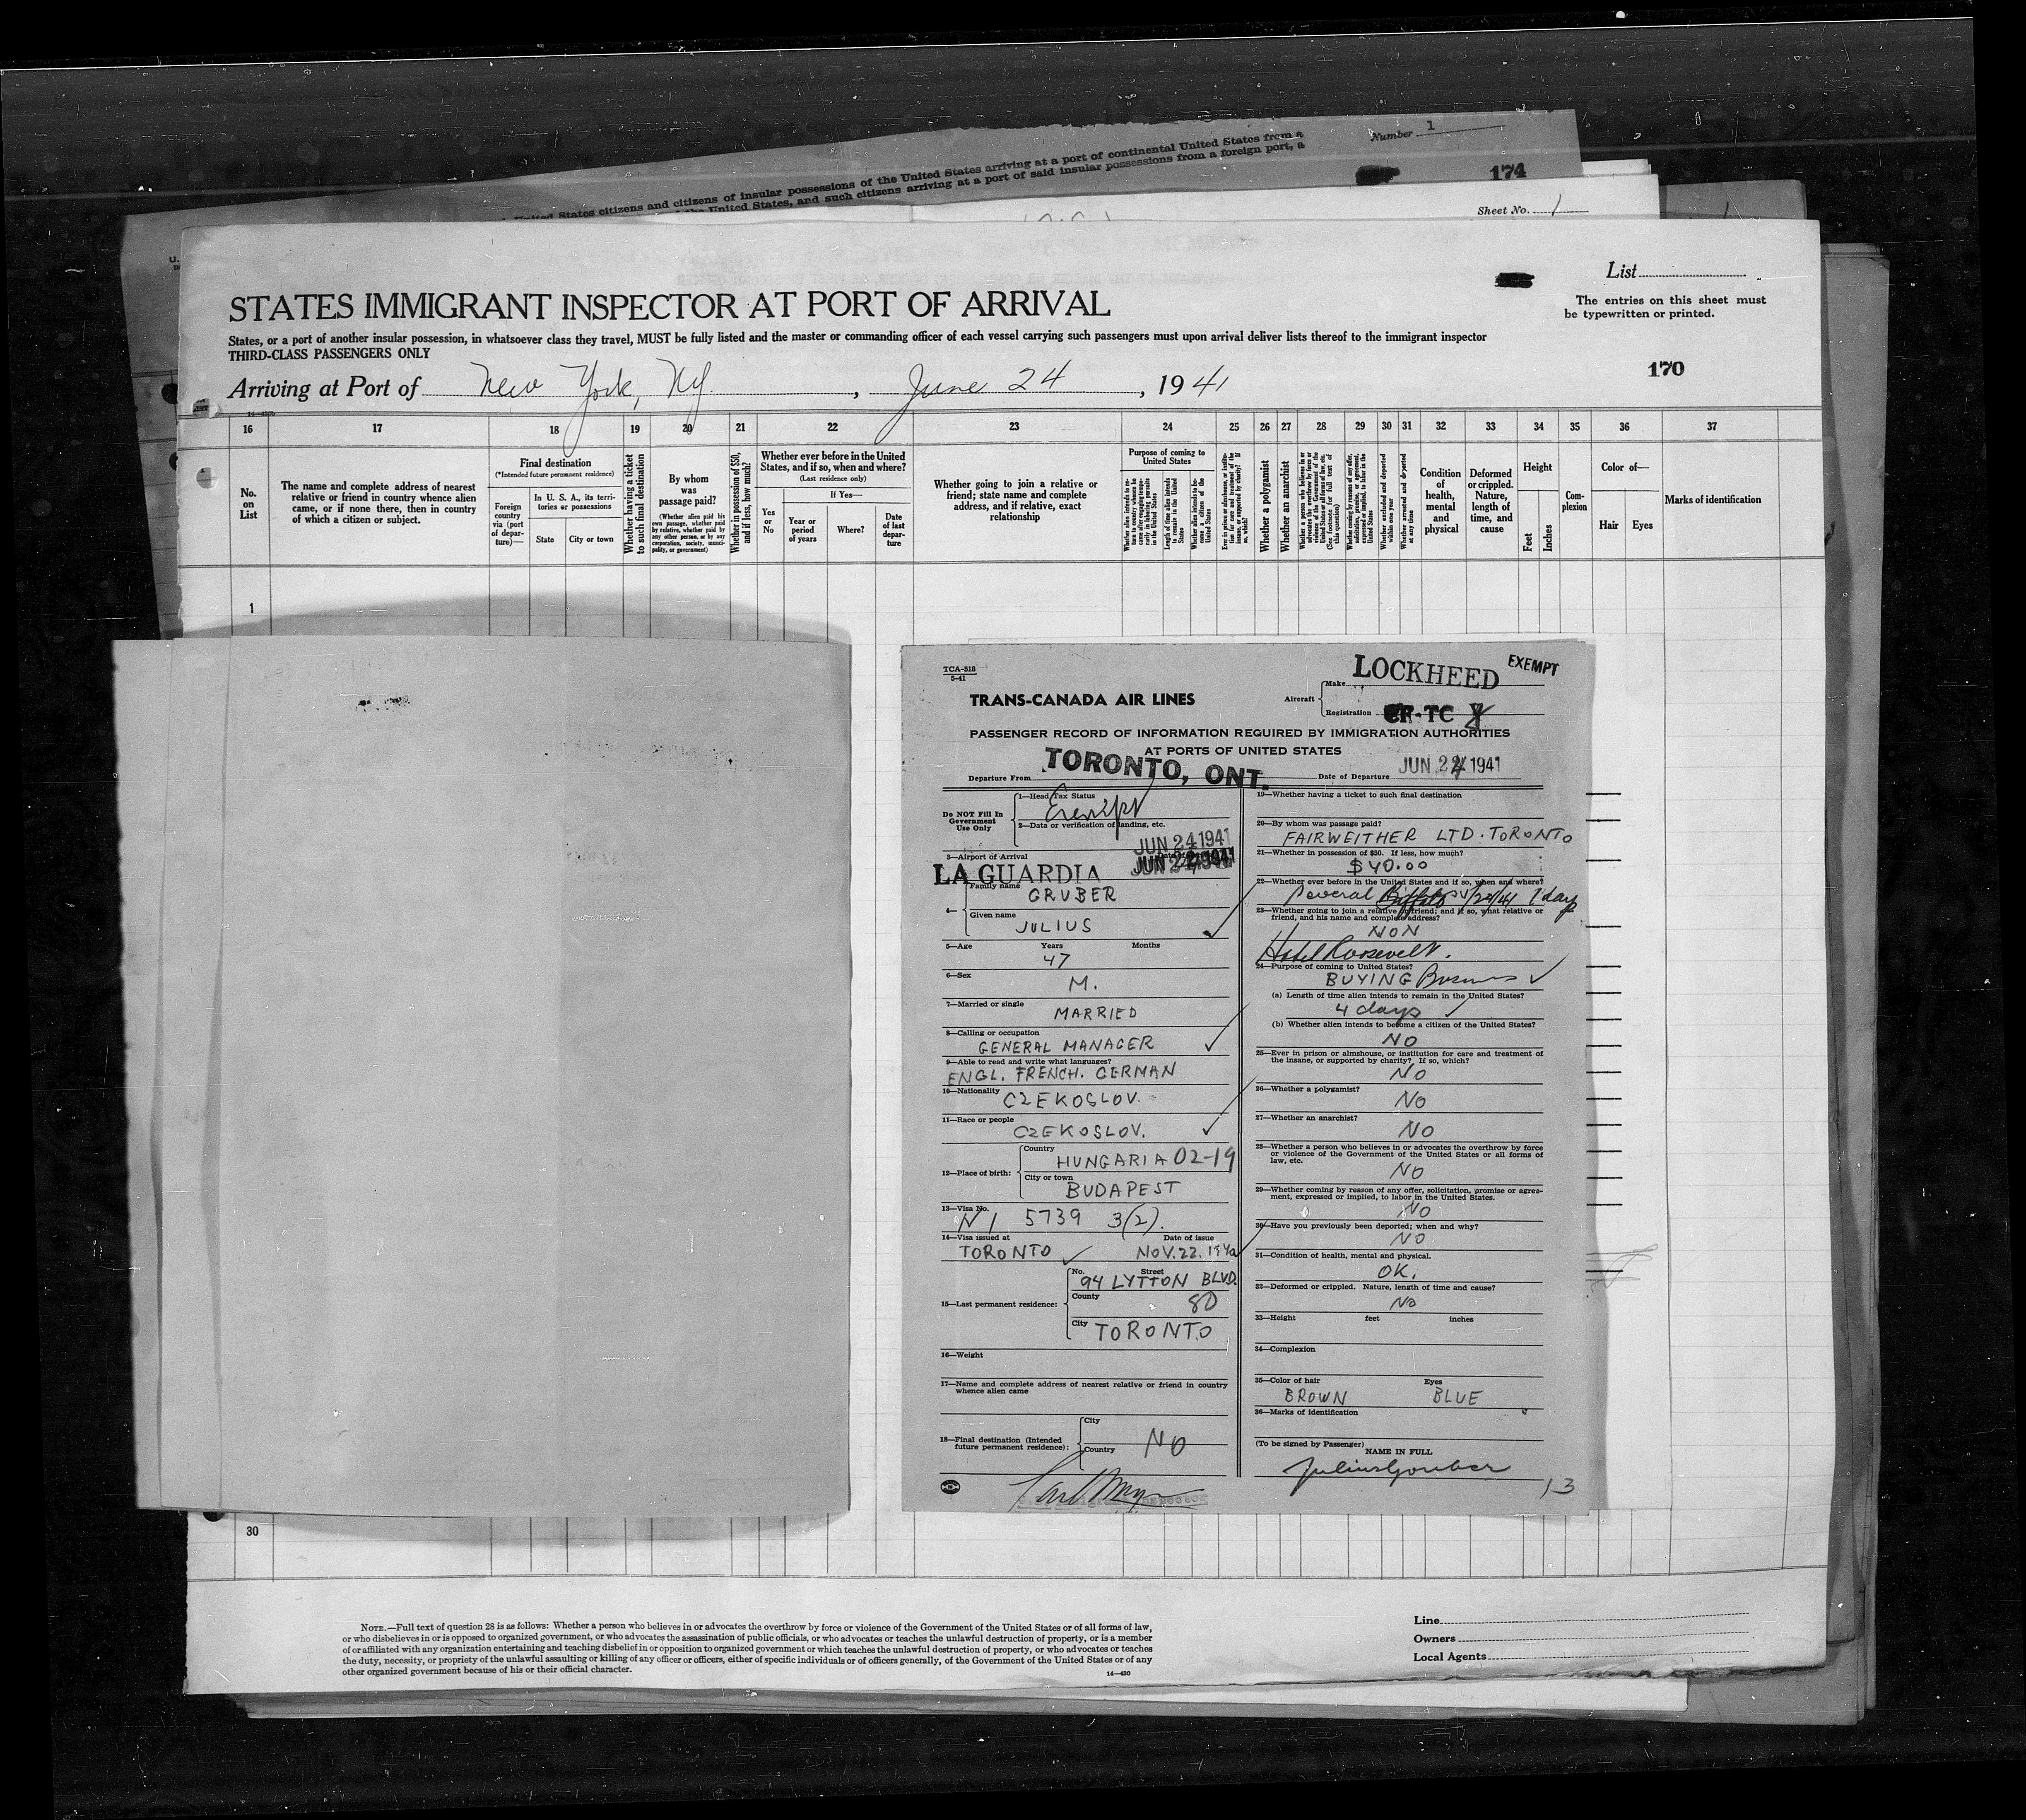 Number 1
United States citizens and citizens of insular possessions of the United States arriving at a port of continental United States from a
the United States, and such citizens arriving at a port of said insular possessions from a foreign port, a
174
Sheet No. 1
List
STATES IMMIGRANT INSPECTOR AT PORT OF ARRIVAL
The entries on this sheet must
be typewritten or printed.
States, or a port of another insular possession, in whatsoever class they travel, MUST be fully listed and the master or commanding officer of each vessel carrying such passengers must upon arrival deliver lists thereof to the immigrant inspector
THIRD-CLASS PASSENGERS ONLY
170
Arriving at Port of New York, NY, June 24, 1941
16 17 18 19 20 21 22 23 24 25 26 27 28 29 30 31 32 33 34 35 36 37
No. on List
The name and complete address of nearest
relative or friend in country whence alien
came, or if none there, then in country
of which a citizen or subject.
Final destination
(*Intended future permanent residence)
Foreign country via (port of departure)—
In U. S. A., its territories or possessions
State
City or town
Whether having a ticket to such final destination
By whom was passage paid?
(Whether alien paid his own passage, whether paid by relative, whether paid by any other person, or by any corporation, society, municipality, or government)
Whether in possession of $50, and if less, how much?
Whether ever before in the United
States, and if so, when and where?
(Last residence only)
Yes or No
If Yes—
Year or period of years
Where?
Date of last departure
Whether going to join a relative or
friend; state name and complete
address, and if relative, exact
relationship
Purpose of coming to
United States
Length of time alien intends to remain in the United States
Whether alien intends to become a citizen of the United States
Whether a polygamist
Whether an anarchist
Whether excluded and deported within one year
Whether arrested and deported at any time
Condition of health, mental and physical
Deformed or crippled. Nature, length of time, and cause
Height
Feet
Inches
Complexion
Color of—
Hair
Eyes
Marks of identification
1
TCA-518
5-41
TRANS-CANADA AIR LINES
Aircraft
Make LOCKHEED
EXEMPT
Registration CF-TC
PASSENGER RECORD OF INFORMATION REQUIRED BY IMMIGRATION AUTHORITIES
AT PORTS OF UNITED STATES
Departure From TORONTO, ONT.
Date of Departure JUN 24 1941
Do NOT Fill In
Government
Use Only
1—Head Tax Status
Exempt
2—Data or verification of landing, etc.
JUN 24 1941
3—Airport of Arrival
LA GUARDIA
4—
Family name
GRUBER
Given name
JULIUS
5—Age Years Months
47
6—Sex
M.
7—Married or single
MARRIED
8—Calling or occupation
GENERAL MANAGER
9—Able to read and write what languages?
ENGL. FRENCH. GERMAN
10—Nationality
CZEKOSLOV.
11—Race or people
CZEKOSLOV.
12—Place of birth:
Country
HUNGARIA 02-19
City or town
BUDAPEST
13—Visa No.
N1 5739 3(2).
14—Visa issued at Date of issue
TORONTO NOV. 22. 1940
15—Last permanent residence:
No. Street
94 LYTTON BLVD.
County
80
City TORONTO
16—Weight
17—Name and complete address of nearest relative or friend in country
whence alien came
18—Final destination (Intended
future permanent residence):
City
Country
NO
19—Whether having a ticket to such final destination
20—By whom was passage paid?
FAIRWEITHER LTD. TORONTO
21—Whether in possession of $50. If less, how much?
$40.00
22—Whether ever before in the United States and if so, when and where?
Several Buffalo 1 day
23—Whether going to join a relative or friend; and if so, what relative or
friend, and his name and complete address?
NON
Hotel Roosevelt.
24—Purpose of coming to United States?
BUYING Business
(a) Length of time alien intends to remain in the United States?
4 days
(b) Whether alien intends to become a citizen of the United States?
NO
25—Ever in prison or almshouse, or institution for care and treatment of
the insane, or supported by charity? If so, which?
NO
26—Whether a polygamist?
NO
27—Whether an anarchist?
NO
28—Whether a person who believes in or advocates the overthrow by force
or violence of the Government of the United States or all forms of
law, etc.
NO
29—Whether coming by reason of any offer, solicitation, promise or agree-
ment, expressed or implied, to labor in the United States.
NO
30—Have you previously been deported; when and why?
NO
31—Condition of health, mental and physical.
OK.
32—Deformed or crippled. Nature, length of time and cause?
NO
33—Height feet inches
34—Complexion
35—Color of hair Eyes
BROWN BLUE
36—Marks of identification
(To be signed by Passenger)
NAME IN FULL
Julius Gruber
13
30
NOTE.—Full text of question 28 is as follows: Whether a person who believes in or advocates the overthrow by force or violence of the Government of the United States or of all forms of law,
or who disbelieves in or is opposed to organized government, or who advocates the assassination of public officials, or who advocates or teaches the unlawful destruction of property, or is a member
of or affiliated with any organization entertaining and teaching disbelief in or opposition to organized government or which teaches the unlawful destruction of property, or who advocates or teaches
the duty, necessity, or propriety of the unlawful assaulting or killing of any officer or officers, either of specific individuals or of officers generally, of the Government of the United States or of any
other organized government because of his or their official character.
14—430
Line
Owners
Local Agents